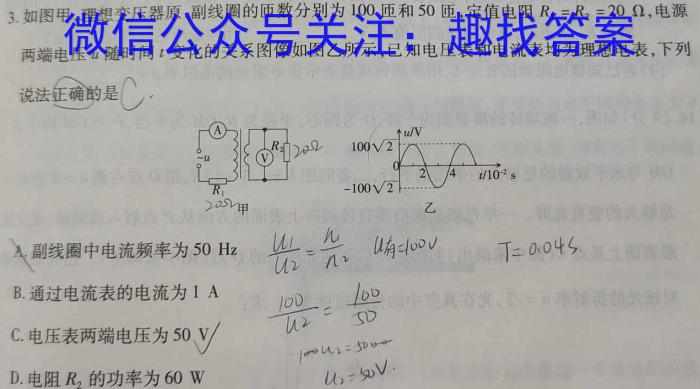 3.如图甲,理想变压器原、副线圈的匝数分别为100匝和50匝,定值电阻R₁=R₂=20 Ω,电源
微信公众号关注:趣找答案
两端电压u随时间t变化的关系图像如图乙所示,已知电压表和电流表均为理想电表,下列
说法正确的是 C.
A
~u
V
R₂ 20Ω
R₁
20Ω 甲
u/V
100√2
0
2 4 t/10⁻² s
-100√2
乙
A.副线圈中电流频率为50 Hz
B.通过电流表的电流为1 A
C.电压表两端电压为50 V
D.电阻R₂的功率为60 W
U₁/U₂ = n₁/n₂ U有=100V T=0.04s.
100/U₂ = 100/50
U₂=50V.